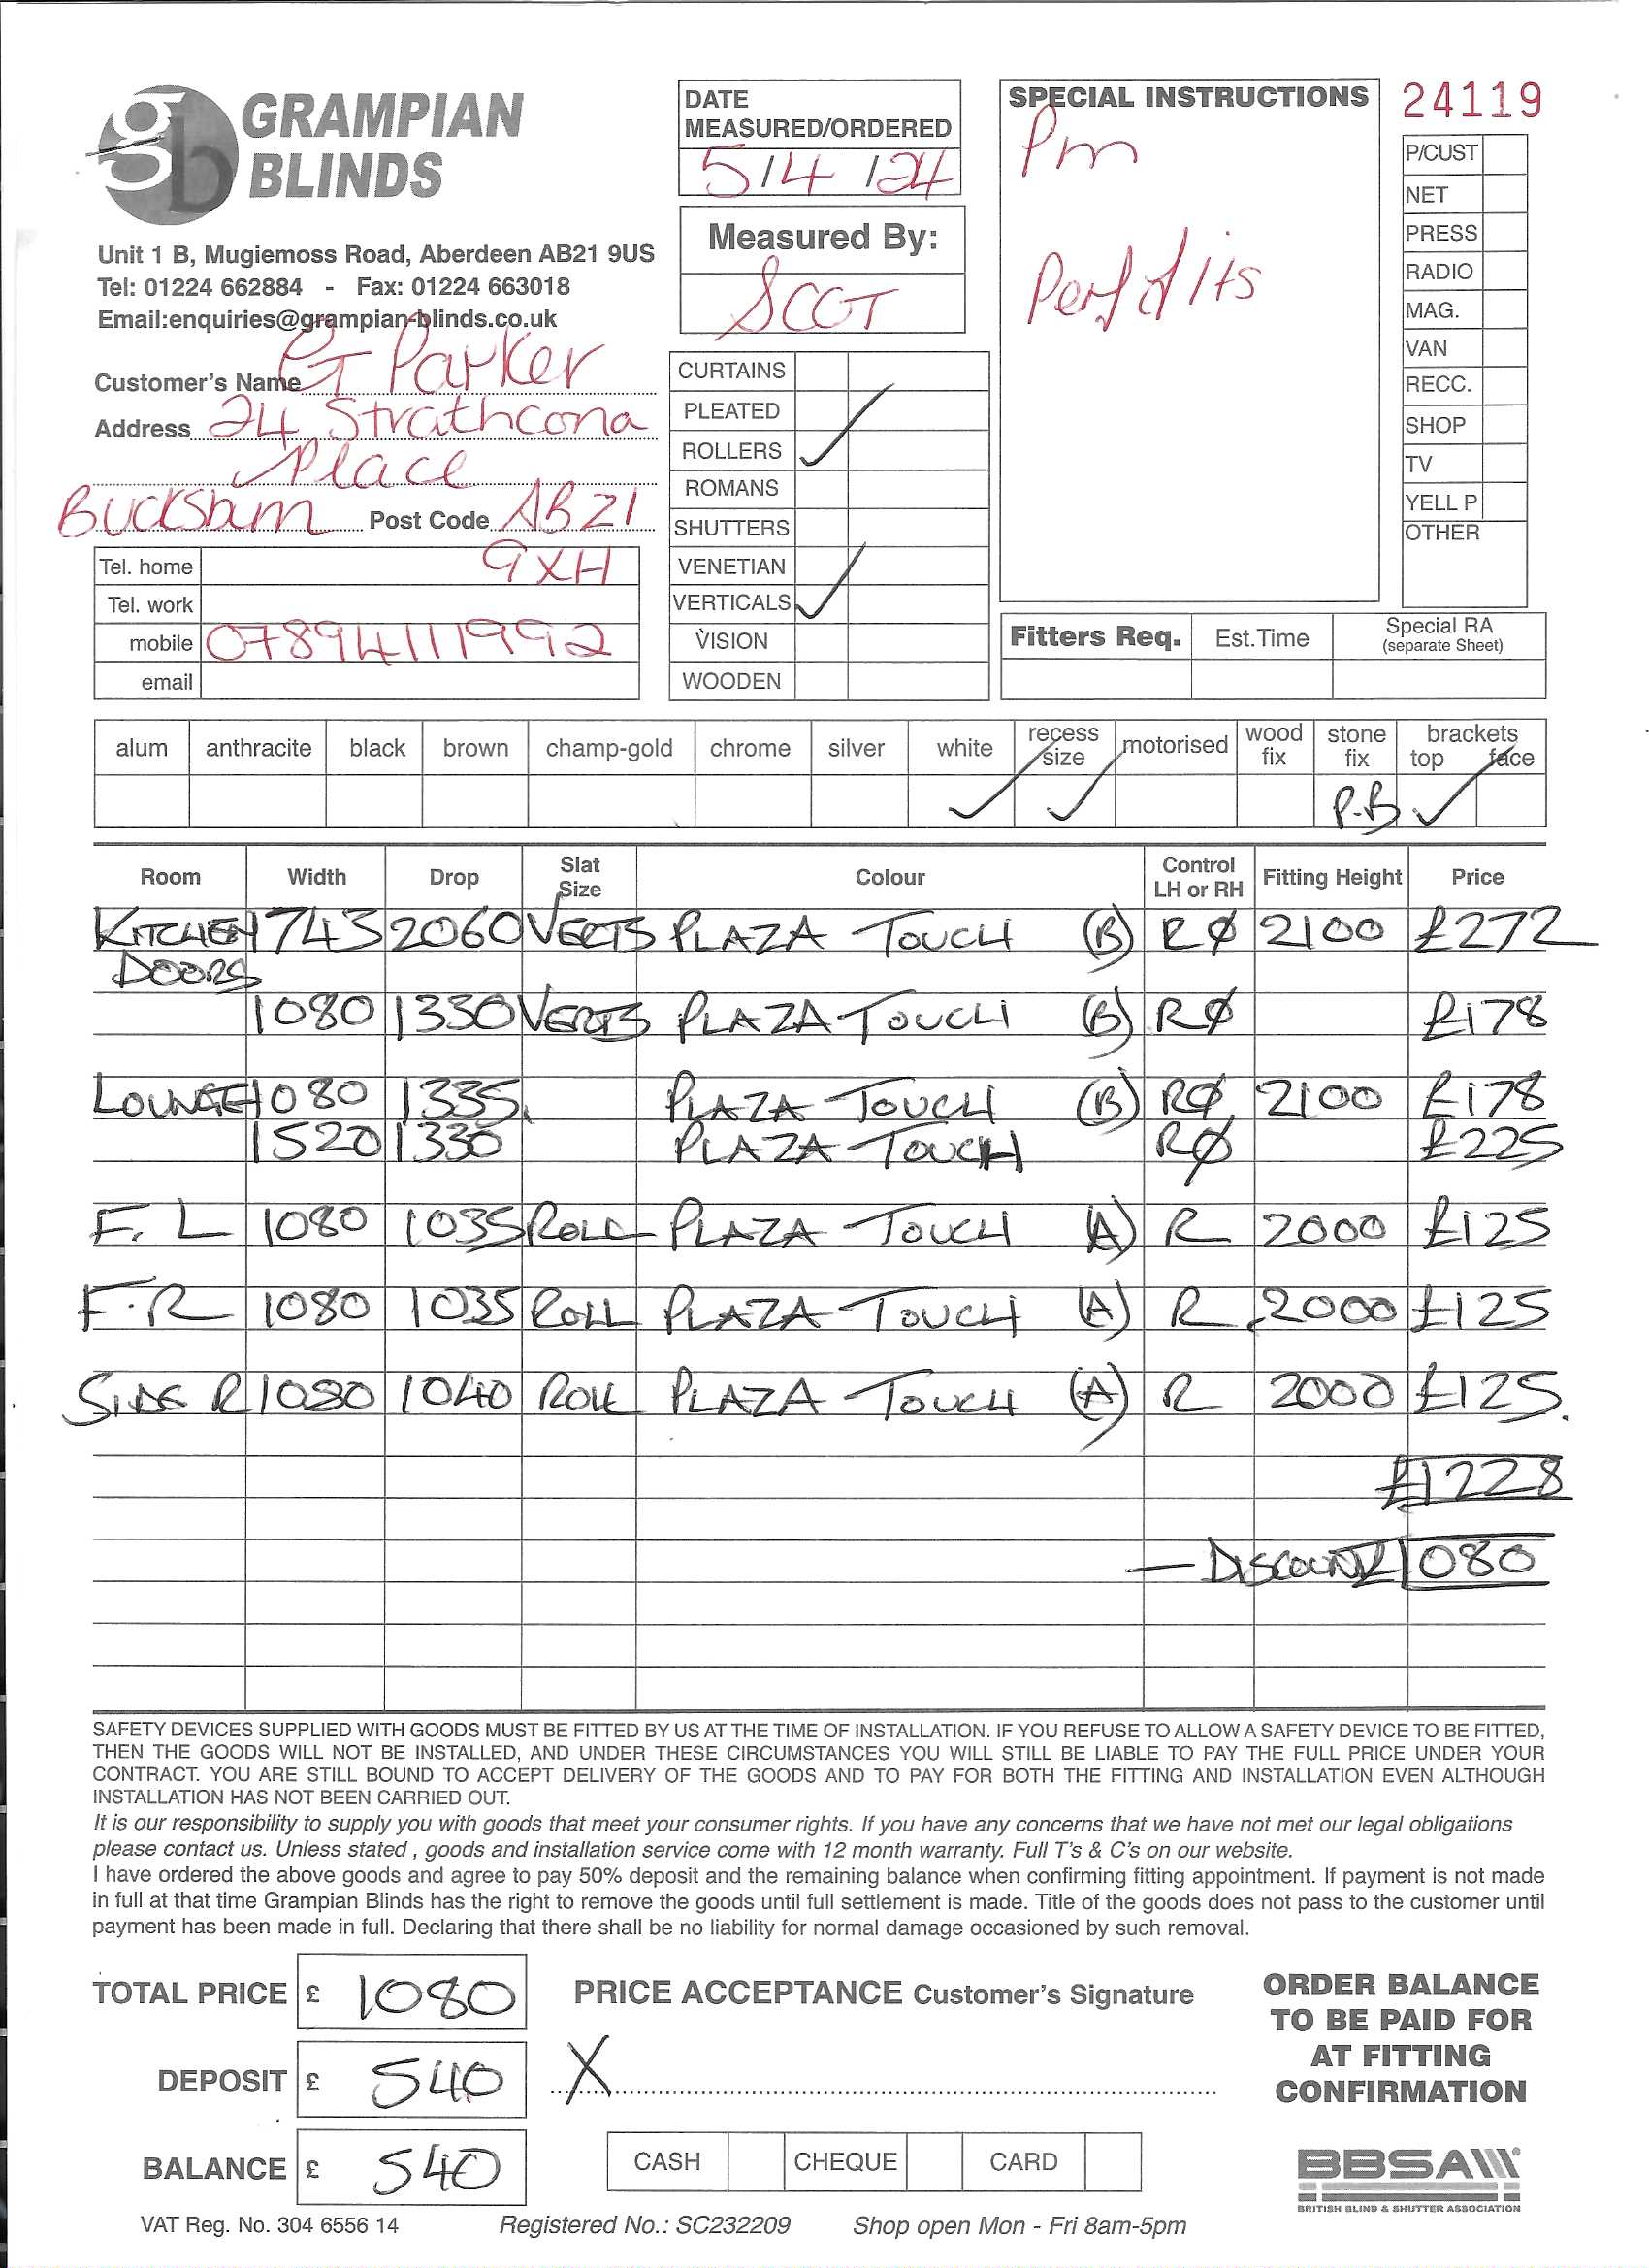 GRAMPIAN
BLINDS
Unit 1 B, Mugiemoss Road, Aberdeen AB21 9US
Tel: 01224 662884 - Fax: 01224 663018
Email:enquiries@grampian-blinds.co.uk
Customer's Name G Parker
Address 24 Strathcona
Place
Bucksburn Post Code AB21
9XH
Tel. home
Tel. work
mobile 07894111992
email
DATE
MEASURED/ORDERED
5/4/24
Measured By:
SCOT
CURTAINS
PLEATED
ROLLERS ✓
ROMANS
SHUTTERS
VENETIAN
VERTICALS ✓
VISION
WOODEN
SPECIAL INSTRUCTIONS
Pm
24119
P/CUST
NET
PRESS
RADIO
MAG.
VAN
RECC.
SHOP
TV
YELL P
OTHER
Fitters Req. Est.Time Special RA
(separate Sheet)
alum anthracite black brown champ-gold chrome silver white recess size motorised wood fix stone fix brackets top face
✓ ✓ P.B ✓
Room Width Drop Slat Size Colour Control LH or RH Fitting Height Price
KITCHEN 1743 2060 VERTS PLAZA TOUCH (B) RØ 2100 £272
DOORS
1080 1330 VERTS PLAZA TOUCH (B) RØ £178
LOUNGE 1080 1335 PLAZA TOUCH (B) RØ 2100 £178
1520 1330 PLAZA TOUCH RØ £225
F. L 1080 1035 ROLL PLAZA TOUCH (A) R 2000 £125
F.R 1080 1035 ROLL PLAZA TOUCH (A) R 2000 £125
SIDE R 1080 1040 ROLL PLAZA TOUCH (A) R 2000 £125.
£1228
— DISCOUNT £1080
SAFETY DEVICES SUPPLIED WITH GOODS MUST BE FITTED BY US AT THE TIME OF INSTALLATION. IF YOU REFUSE TO ALLOW A SAFETY DEVICE TO BE FITTED,
THEN THE GOODS WILL NOT BE INSTALLED, AND UNDER THESE CIRCUMSTANCES YOU WILL STILL BE LIABLE TO PAY THE FULL PRICE UNDER YOUR
CONTRACT. YOU ARE STILL BOUND TO ACCEPT DELIVERY OF THE GOODS AND TO PAY FOR BOTH THE FITTING AND INSTALLATION EVEN ALTHOUGH
INSTALLATION HAS NOT BEEN CARRIED OUT.
It is our responsibility to supply you with goods that meet your consumer rights. If you have any concerns that we have not met our legal obligations
please contact us. Unless stated , goods and installation service come with 12 month warranty. Full T's & C's on our website.
I have ordered the above goods and agree to pay 50% deposit and the remaining balance when confirming fitting appointment. If payment is not made
in full at that time Grampian Blinds has the right to remove the goods until full settlement is made. Title of the goods does not pass to the customer until
payment has been made in full. Declaring that there shall be no liability for normal damage occasioned by such removal.
TOTAL PRICE £ 1080
DEPOSIT £ 540
BALANCE £ 540
PRICE ACCEPTANCE Customer's Signature
X
CASH CHEQUE CARD
ORDER BALANCE
TO BE PAID FOR
AT FITTING
CONFIRMATION
BBSA
BRITISH BLIND & SHUTTER ASSOCIATION
VAT Reg. No. 304 6556 14 Registered No.: SC232209 Shop open Mon - Fri 8am-5pm